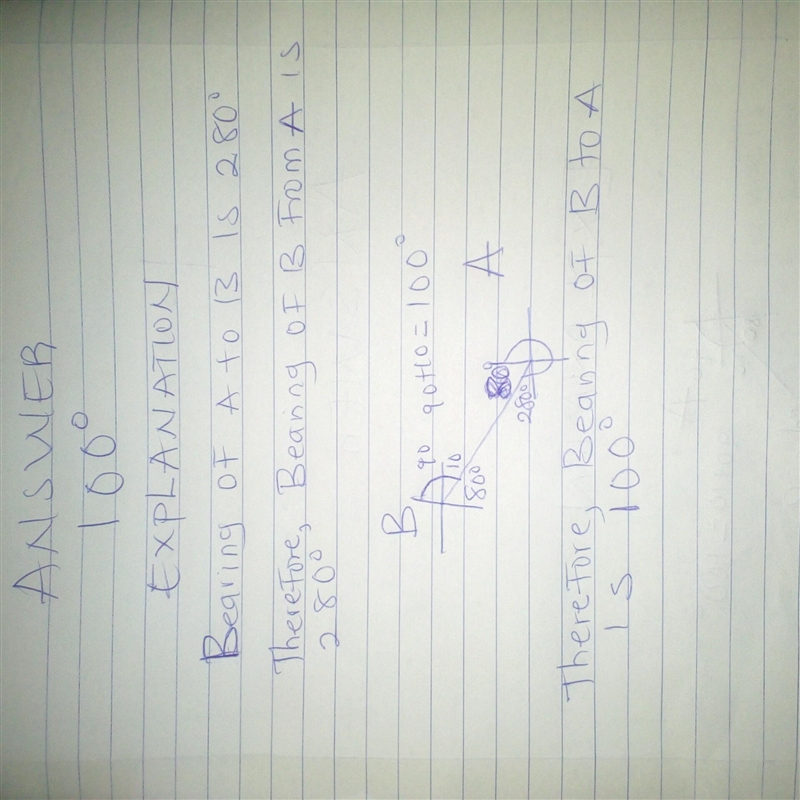 ANSWER
100°
EXPLANATION
Bearing OF A to B Is 280°
Therefore, Bearing OF B From A is
280°
B
90 90+10=100°
10
80°
A
280°
Therefore, Bearing OF B to A
is 100°